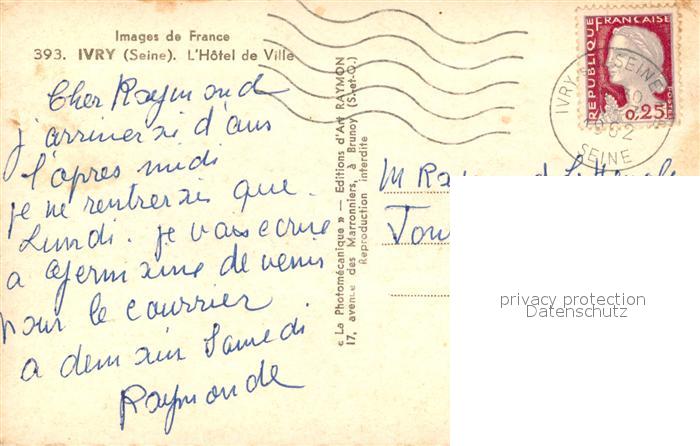 Images de France
393. IVRY (Seine). L'Hôtel de Ville
Cher Raymond
j'arriverai d'ans
l'apres midi
je ne rentrerais que
Lundi. je vais ecrire
a Germaine de venir
pour le courrier
a demain Samedi
Raymonde
« La Photomécanique » — Editions d'Art RAYMON
17, avenue des Marronniers, à Brunoy (S.-et-O.)
Reproduction interdite
REPUBLIQUE FRANÇAISE
POSTES
0,25
IVRY SEINE
1962
SEINE
M
privacy protection
Datenschutz